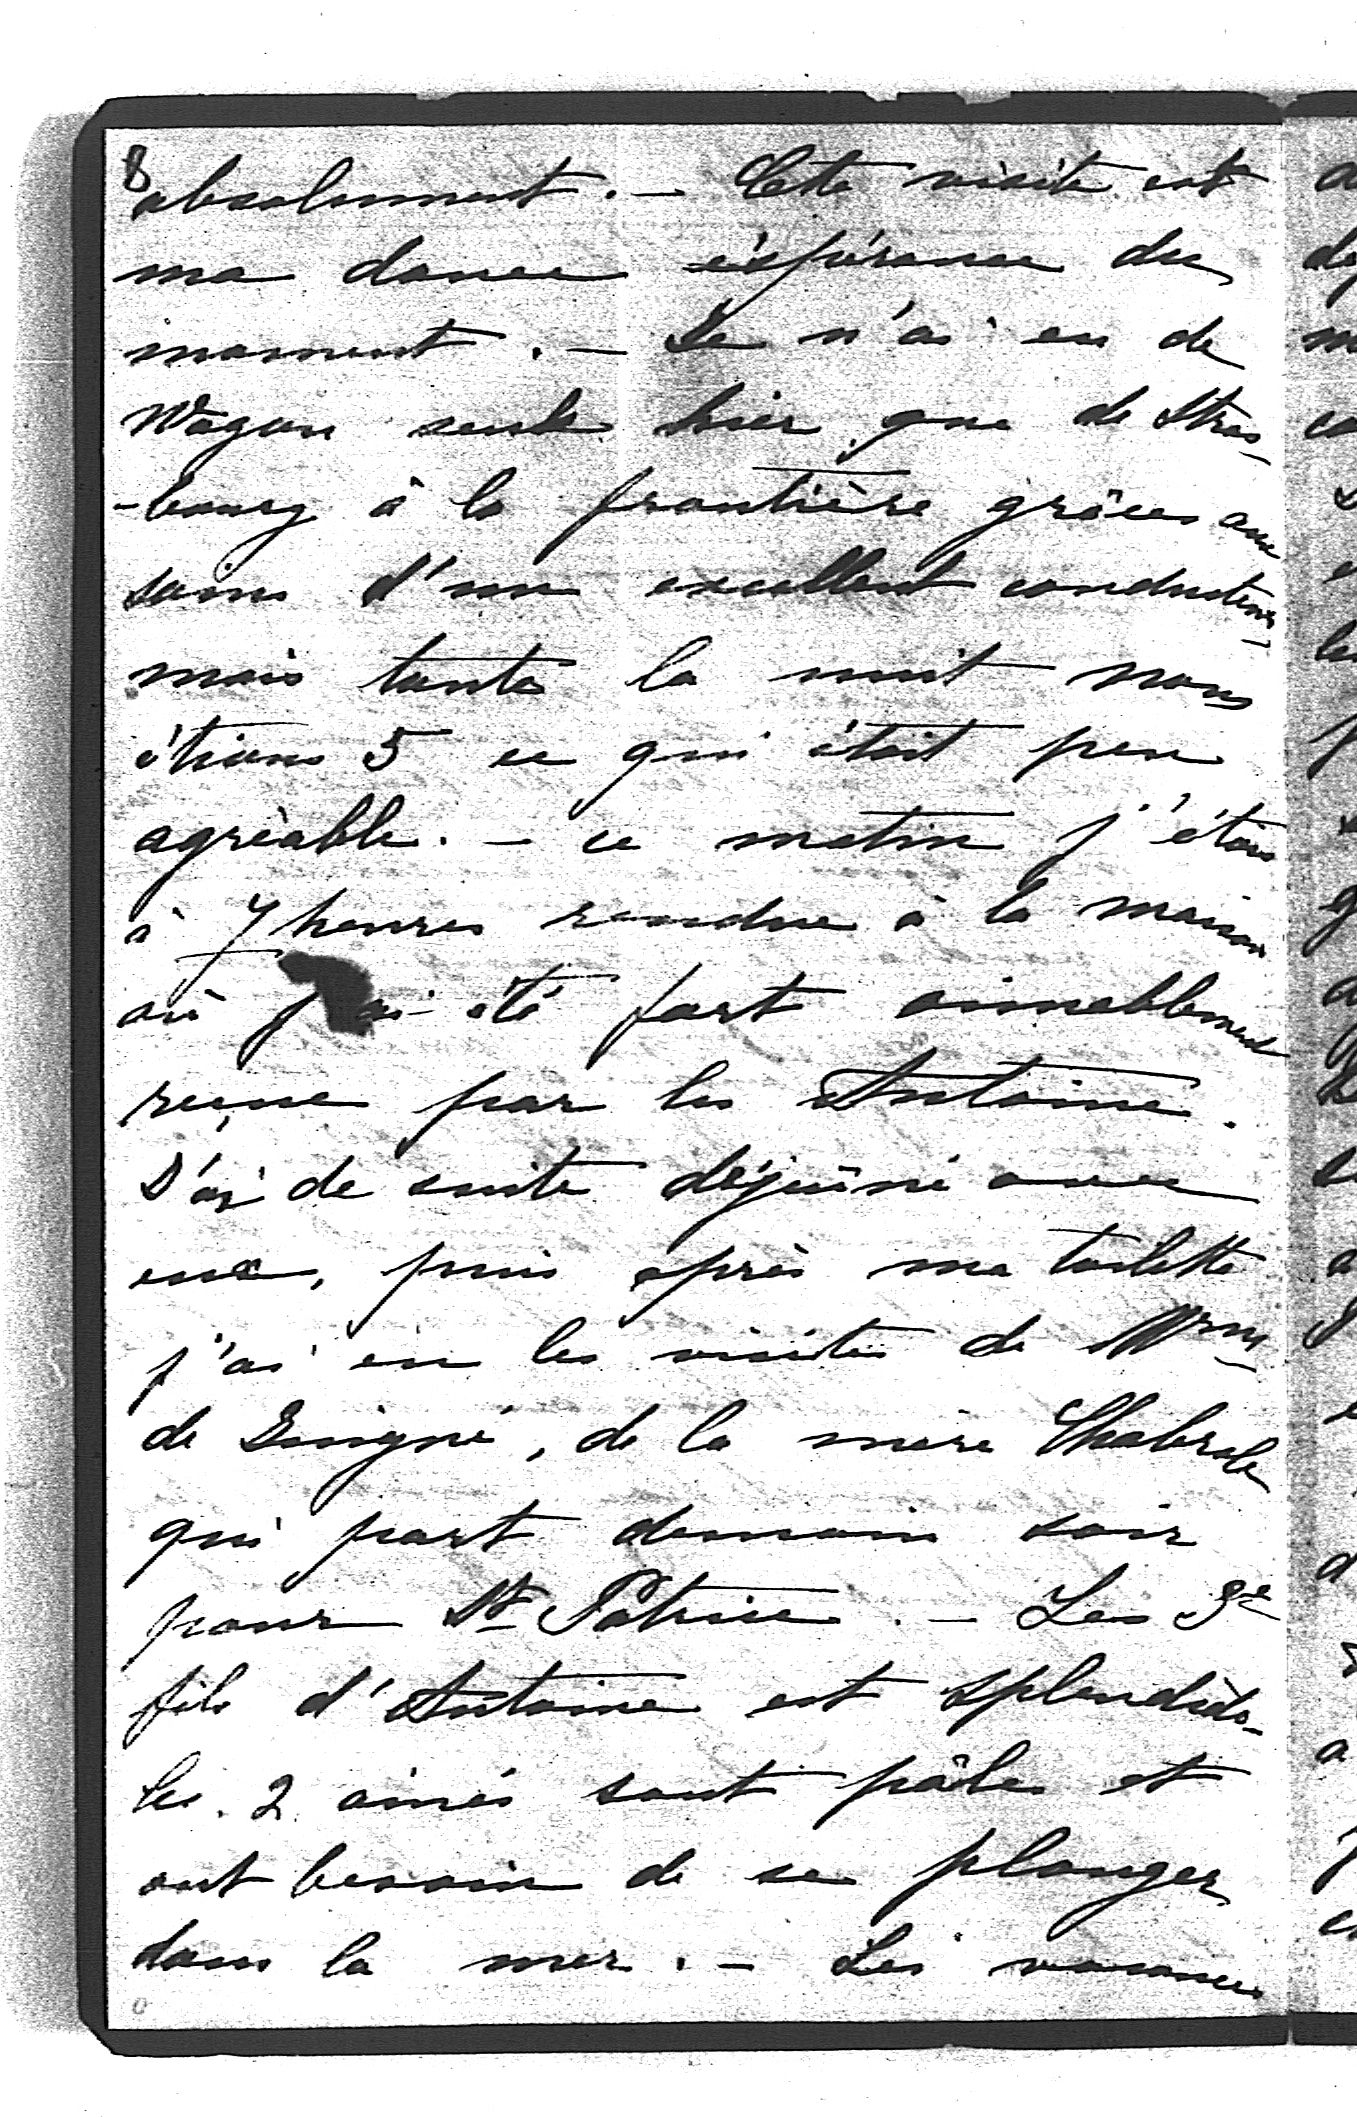 8
absolument. — Cette visite est
ma douce éspérance du
moment. — Je n'ai eu de
Wagon seule hier que de Stras-
-bourg à la frontière grâces aux
soins d'un excellent conducteur,
mais toute la nuit nous
étions 5 ce qui était peu
agréable. — ce matin j'étais
à 7 heures rendue à la maison
où j'ai été fort aimablement
reçue par les Antoine.
J'ai de suite déjeûné avec
eux, puis après ma toilette
j'ai eu les visites de Mme
de Guigné, de la mère Chabrol
qui part demain soir
pour St Patrice. — Le 3e
fils d'Antoine est splendide.
les 2 ainés sont pâles et
ont besoin de se plonger
dans la mer. — Les vacances